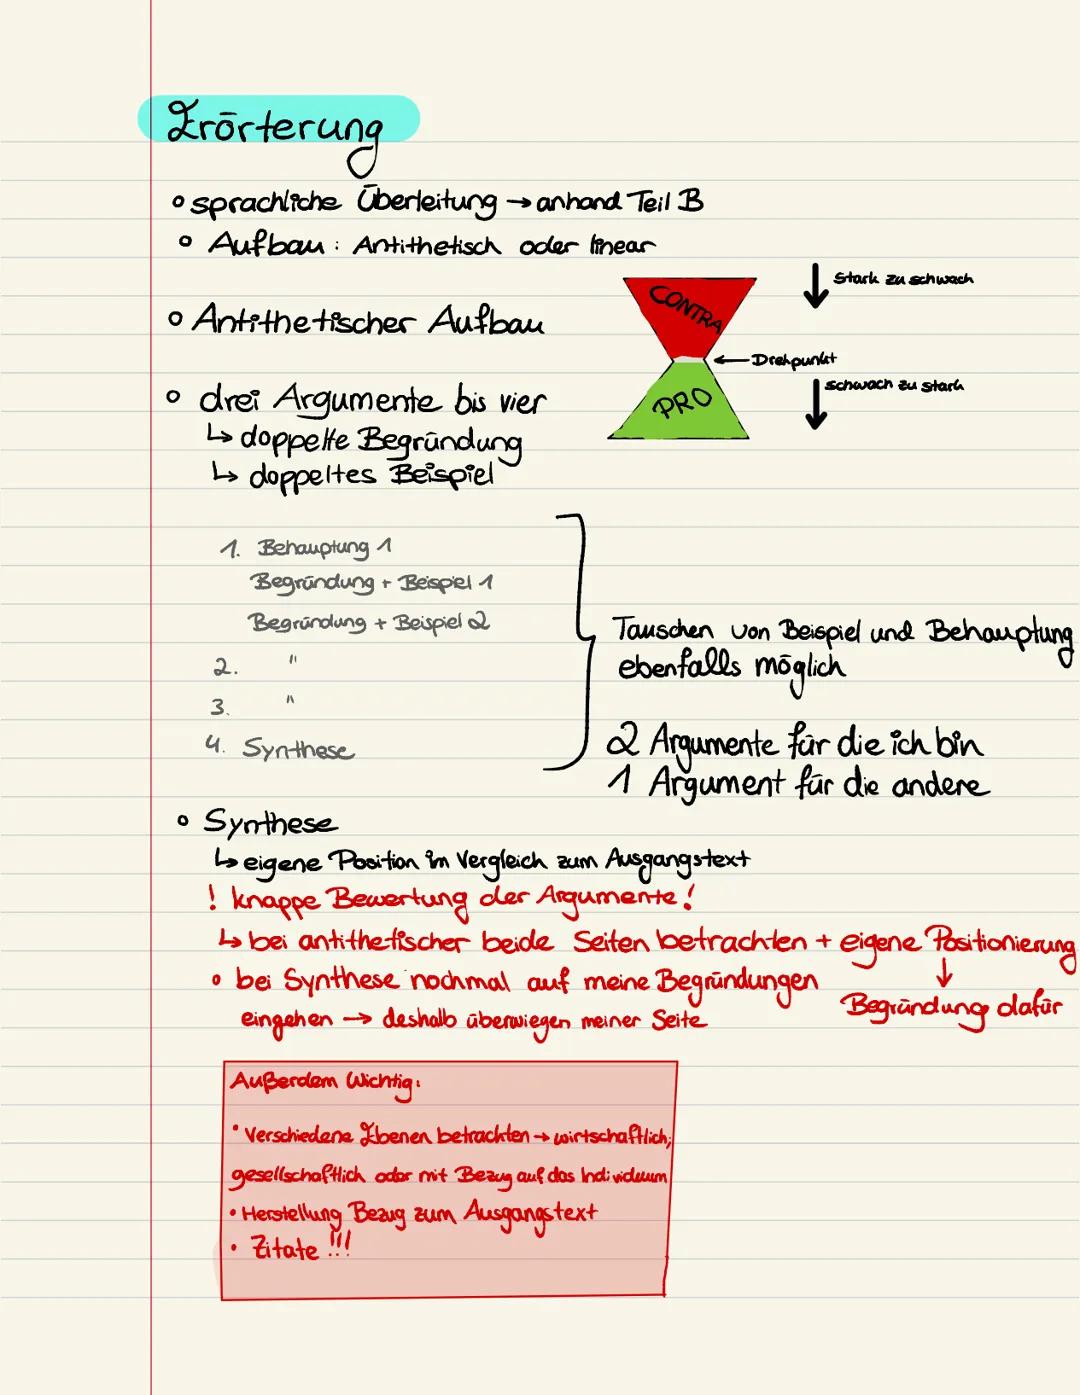 Erörterung
° sprachliche Überleitung → anhand Teil B
° Aufbau : Antithetisch oder linear
CONTRA
↓ stark zu schwach
° Antithetischer Aufbau
← Drehpunkt
PRO
↓ schwach zu stark
° drei Argumente bis vier
↳ doppelte Begründung
↳ doppeltes Beispiel
1. Behauptung 1
Begründung + Beispiel 1
Begründung + Beispiel 2
2. "
3. "
4. Synthese
Tauschen von Beispiel und Behauptung
ebenfalls möglich
2 Argumente für die ich bin
1 Argument für die andere
° Synthese
↳ eigene Position im Vergleich zum Ausgangstext
! knappe Bewertung der Argumente!
↳ bei antithetischer beide Seiten betrachten + eigene Positionierung
↓
Begründung dafür
° bei Synthese nochmal auf meine Begründungen
eingehen → deshalb überwiegen meiner Seite
Außerdem Wichtig:
• Verschiedene Ebenen betrachten → wirtschaftlich,
gesellschaftlich oder mit Bezug auf das Individuum
• Herstellung Bezug zum Ausgangstext
• Zitate !!!